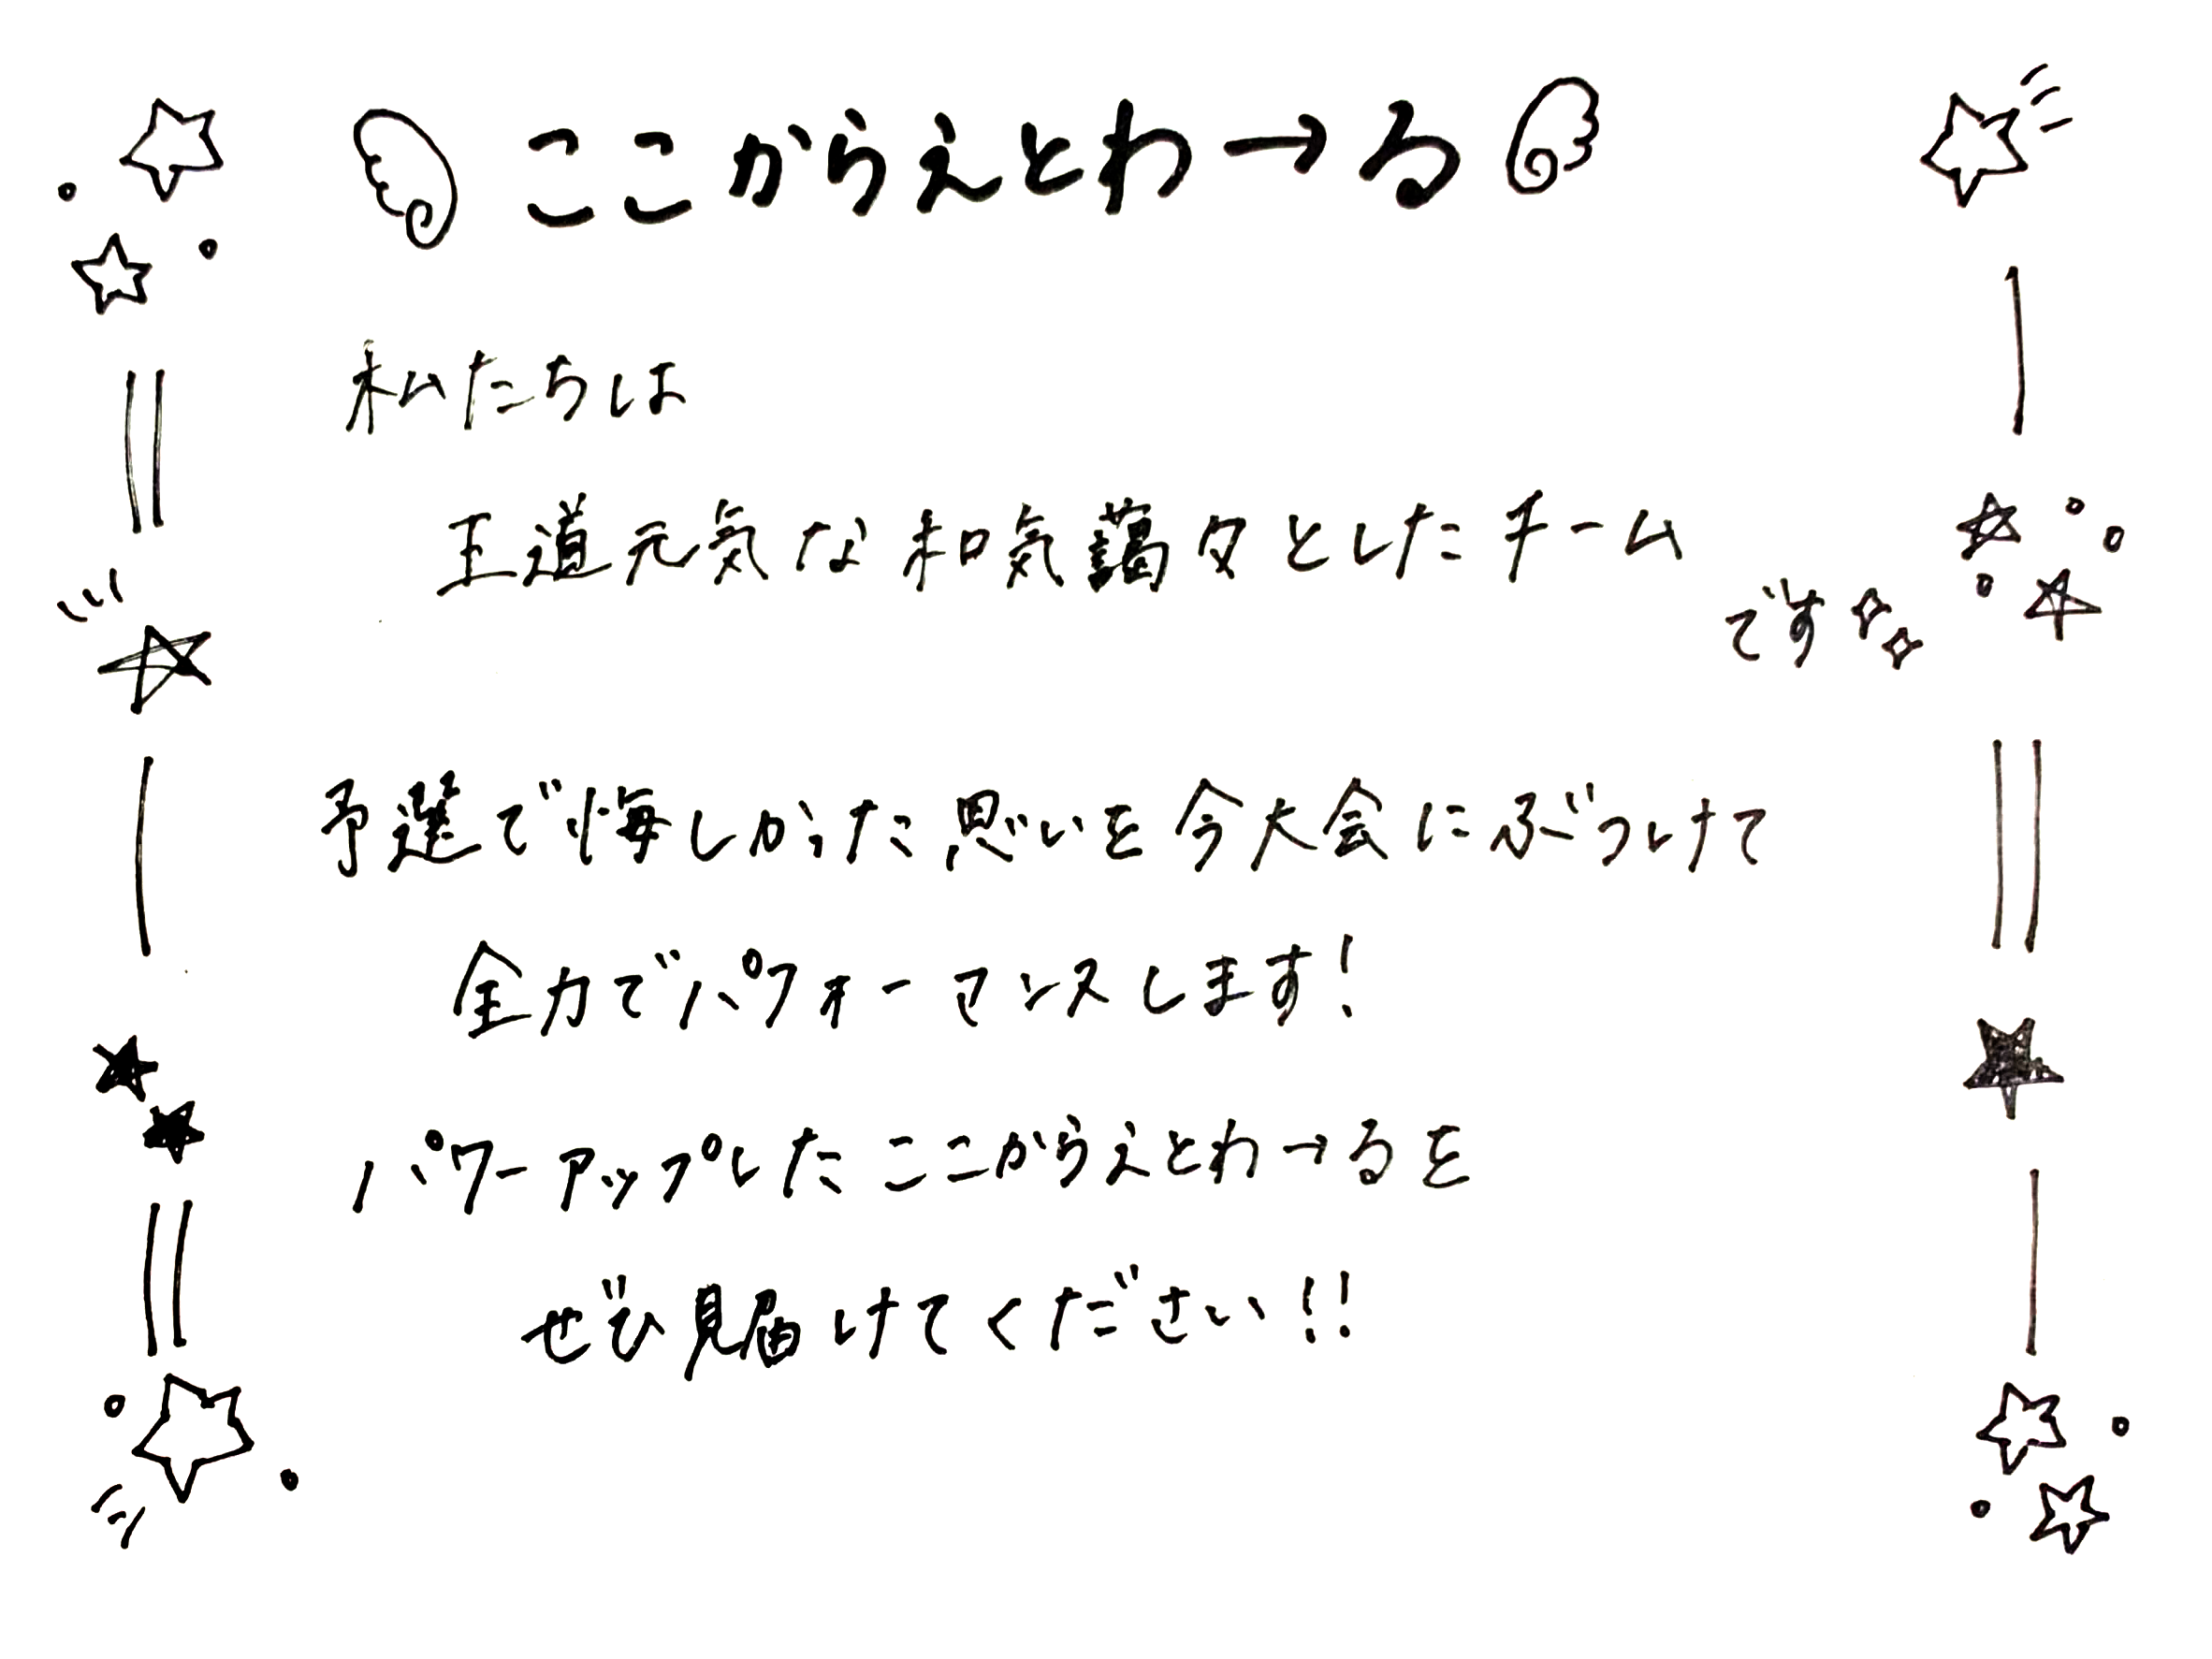 ここからえとわ→る
私たちは
王道元気な和気藹々としたチーム
です
予選で悔しかった思いを今大会にぶつけて
全力でパフォーマンスします!
パワーアップしたここからえとわ→るを
ぜひ見届けてください!!